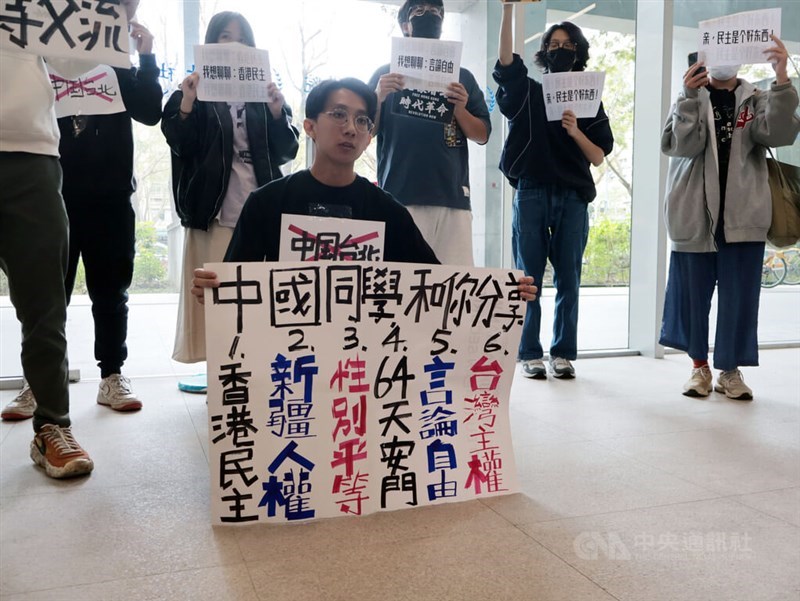 等交流
中国台北
我想聊聊：香港民主
我想聊聊：言論自由
時代革命
REVOLUTION NOW
亲，民主是个好东西！
亲，民主是个好东西！
中国台北
中國同學和你分享
1.香港民主
2.新疆人權
3.性別平等
4.64天安門
5.言論自由
6.台灣主權
CNA 中央通訊社